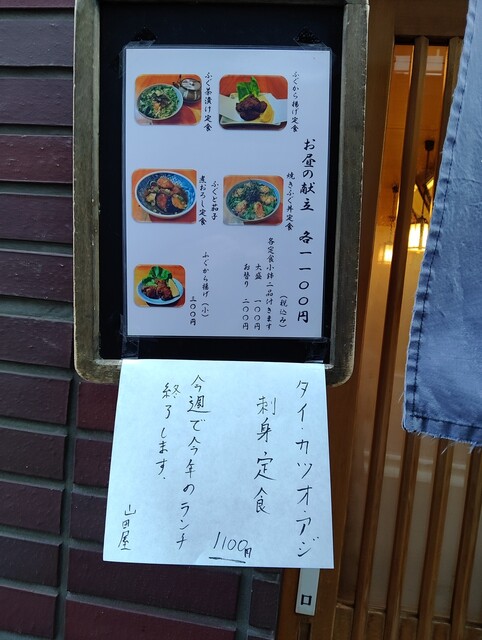 お昼の献立 各一一〇〇円
(税込み)
各定食小鉢二品付きます
大盛 一〇〇円
お替り 二〇〇円
ふぐから揚げ定食
ふぐ茶漬け定食
焼きふぐ丼定食
ふぐと茄子
煮おろし定食
ふぐから揚げ(小)
三〇〇円
タイ・カツオ・アジ
刺身定食
1100円
今週で今年のランチ
終了します.
山田屋
口